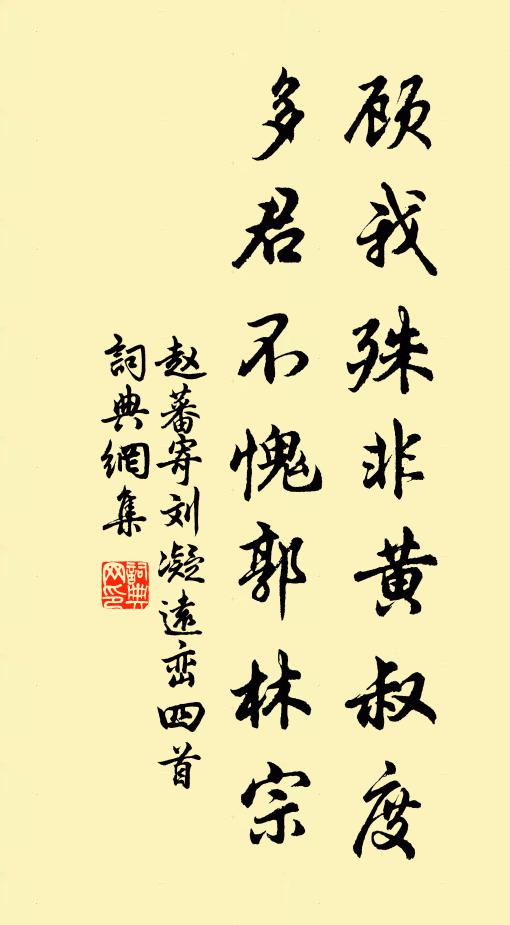 顾我殊非黄叔度
多君不愧郭林宗
赵蕃寄刘凝远峦四首
詞典網集
詞典
网印